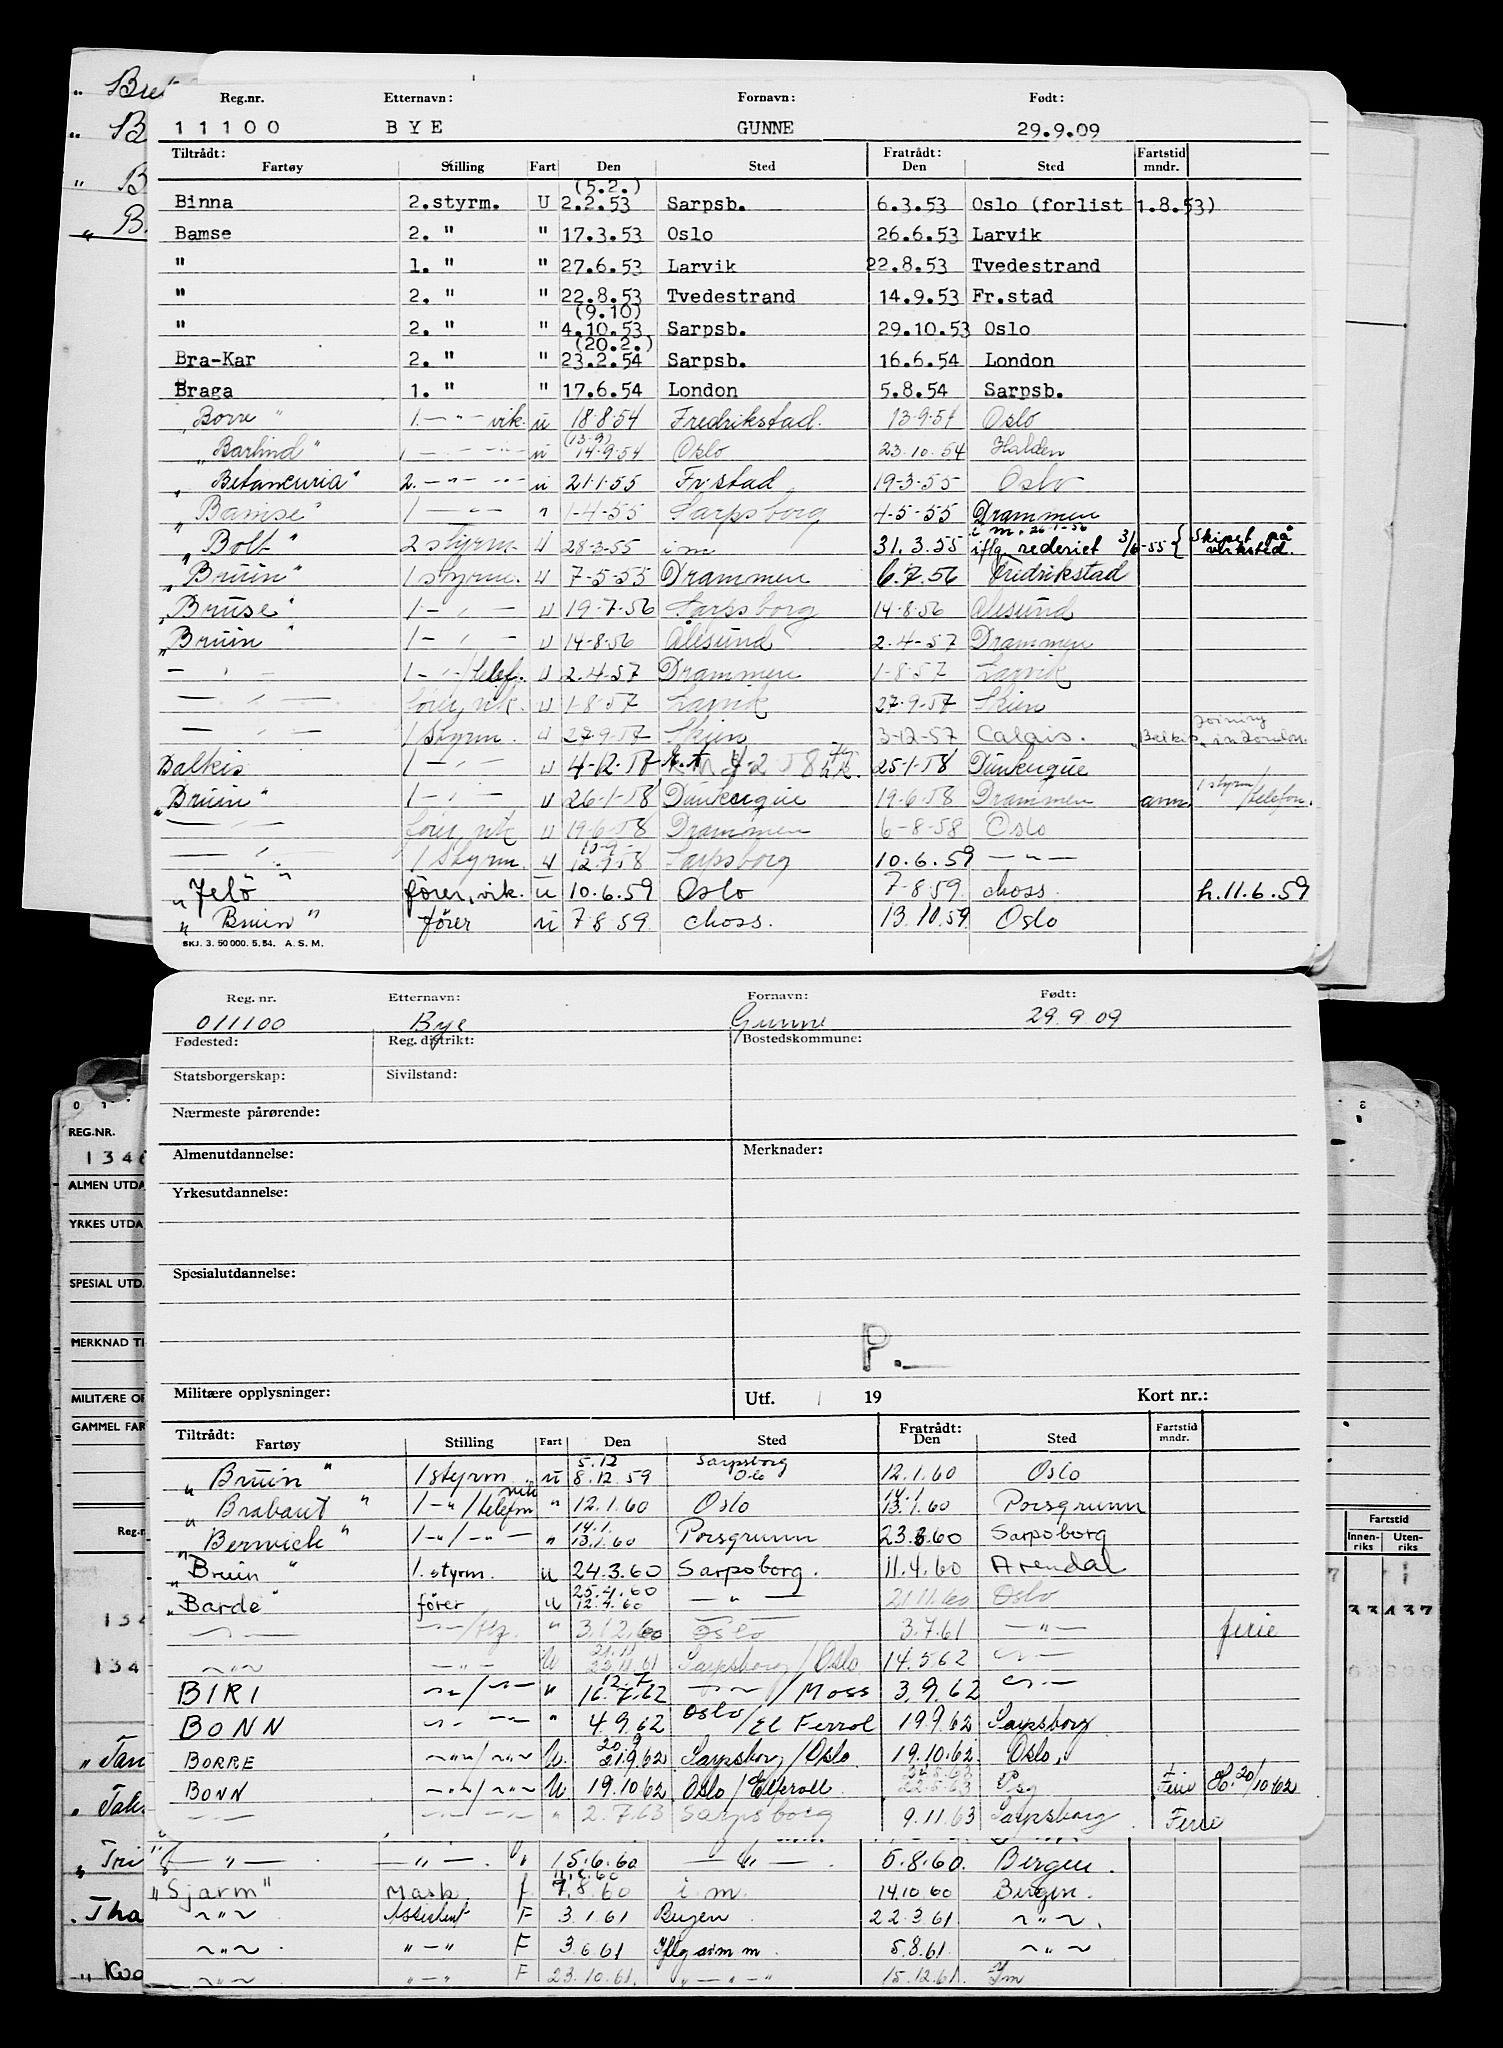 Reg.nr. Etternavn: Fornavn: Født:
11100 BYE GUNNE 29.9.09
Tiltrådt: Fratrådt: Fartstid
Fartøy Stilling Fart Den Sted Den Sted mndr.
(5.2.)
Binna 2.styrm. U 2.2.53 Sarpsb. 6.3.53 Oslo (forlist 1.8.53)
Bamse 2. " " 17.3.53 Oslo 26.6.53 Larvik
" 1. " " 27.6.53 Larvik 22.8.53 Tvedestrand
" 2. " " 22.8.53 Tvedestrand 14.9.53 Fr.stad
(9.10)
" 2. " " 4.10.53 Sarpsb. 29.10.53 Oslo
(20.2.)
Bra-Kar 2. " " 23.2.54 Sarpsb. 16.6.54 London
Braga 1. " " 17.6.54 London 5.8.54 Sarpsb.
"Borre" 1. — " — vik. u 18.8.54 Fredrikstad. 13.9.54 Oslo
(13.9)
"Barlind" u 14.9.54 Oslo 23.10.54 Halden
"Betancuria" 2. — " — u 21.1.55 Fr.stad 19-3-55 Oslo
"Bamse" 1 — " — " 1-4-55 Sarpsborg 4-5-55 Drammen
i m. 26-1-56
"Bolt" 2 styrm. u 28-3-55 i m 31.3.55 iflg. rederiet 3/6-55 { Skipet på verksted.
"Bruin" 1 styrm. u 7-5-55 Drammen 6.7.56 Fredrikstad
"Bruse" 1 — " — u 19-7-56 Sarpsborg 14-8-56 Ålesund
"Bruin" 1 — " — u 14-8-56 Ålesund 2.4-57 Drammen
— " — 1 — " —/telef. u 2.4.57 Drammen 1-8-57 Larvik
— " — fører, vik. u 1-8-57 Larvik 27-9-57 Skien
— " — 1 styrm. u 27-9-57 Skien 3-12-57 Calais. "Balkis" joining in London.
Balkis 1 — " — u 4-12-57 25-1-58 Dunkerque
"Bruin" 1 — " — u 26-1-58 Dunkerque 19-6-58 Drammen anm. 1 styrm/telefon.
— " — fører, vik u 19-6-58 Drammen 6-8-58 Oslo
— " — 1 styrm. u 12.9.58 Sarpsborg 10.6.59 — " —
"Jelö" fører, vik. u 10.6.59 Oslo 7-8 59. Moss. h. 11.6.59
"Bruin" fører u 7 8 59. Moss. 13.10.59 Oslo
SKJ. 3. 50 000. 5. 54. A. S. M.
Reg. nr. Etternavn: Fornavn: Født:
011100 Bye Gunne 29.9 09
Fødested: Reg. distrikt: Bostedskommune:
Statsborgerskap: Sivilstand:
Nærmeste pårørende:
Almenutdannelse: Merknader:
Yrkesutdannelse:
Spesialutdannelse:
P.—
Militære opplysninger: Utf. / 19 Kort nr.:
Tiltrådt: Fratrådt: Fartstid
Fartøy Stilling Fart Den Sted Den Sted mndr.
5.12 Sarpsborg
"Bruin" 1 styrm u 8.12.59 Oslo 12.1.60 Oslo
vik 14.1
"Brabant" 1 — " / telefon " 12.1.60 Oslo 13.1.60 Porsgrunn
14.1.
"Berwick" 1 — " / — " — " 13.1.60 Porsgrunn 23.3.60 Sarpsborg
"Bruin" 1. styrm. u 24.3.60 Sarpsborg. 11.4.60 Arendal
25.4.60
"Barde" fører u 12.4.60 — " — 21.11.60 Oslo
— " — " 3.12.60 Oslo 3.7.61 — " — ferie
— " — — " — U 23.11.61 Sarpsborg/Oslo 14.5 62 — " —
12.7
BIRI — " — / — " — " 16.7.62 — " — / Moss 3.9.62 — " —
BONN — " — — " — " 4.9.62 Oslo/El Ferrol 19.9.62 Sarpsborg
20.9
BORRE — " — / — " — U. 21.9.62 Sarpsborg/Oslo 19.10.62 Oslo,
BONN — " — / — " — U 19.10.62 Oslo/Elleroll Psg Ferie H. 20/10.62
— " — — " — " 2.7.63 Sarpsborg 9.11.63 Sarpsborg Ferie
— " — — " — . " 15.6.60 — " — . 5.8.60. Bergen.
"Sjarm" Mask. f. 7.8.60 i m. 14.10.60 Bergen.
— " — Assistent F 3.1.61 Bergen 22.3.61 — " — .
— " — . " — " F 3.6.61 Iflg sim m. 5.8.61. — " —
— " — " — " F 23.10.61. " — " — " 15.12.61. Im
REG.NR.
ALMEN UTDA
YRKES UTDA
SPESIAL UTD.
MERKNAD TI
MILITÆRE OP
GAMMEL FAR
Reg.n
134
134
Fartstid
Innen-riks Uten-riks
33 137